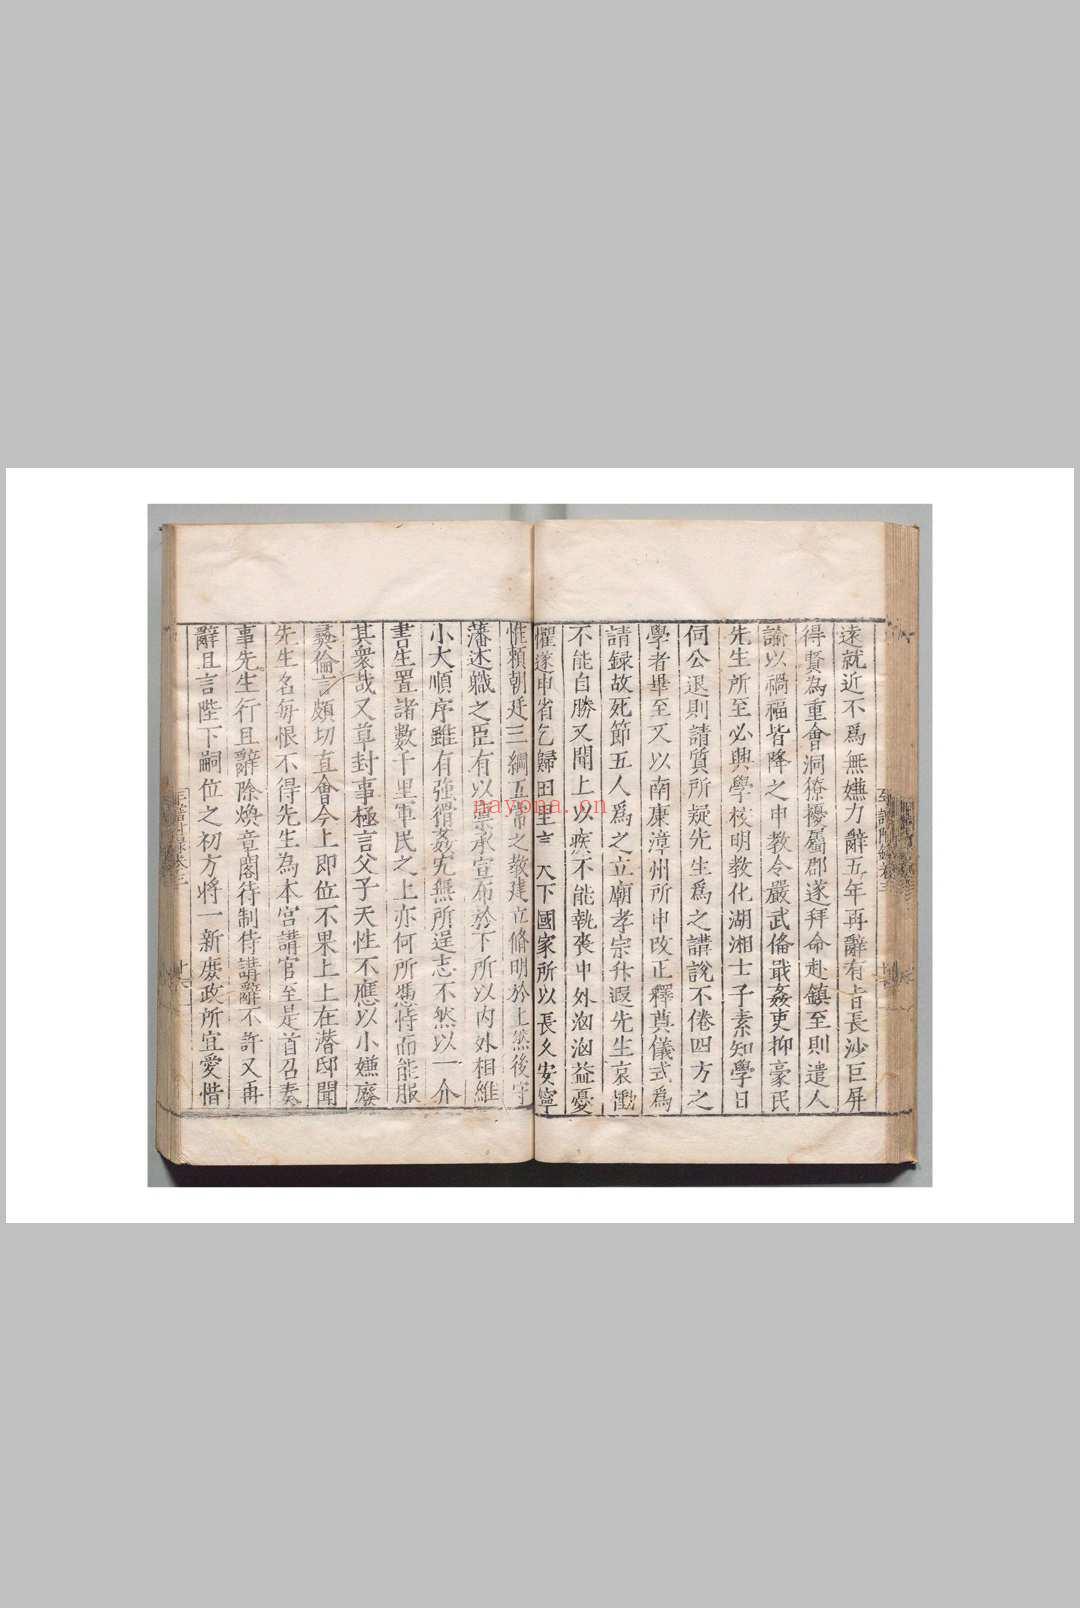 遠就近不爲無嫌力辭五年再辭有旨長沙巨屏
得賢為重會洞獠擾屬郡遂拜命赴鎮至則遣人
諭以禍福皆降之申教令嚴武俻戢姦吏抑豪民
先生所至必興學校明教化湖湘士子素知學日
伺公退則請質所疑先生爲之講說不倦四方之
學者畢至又以南康漳州所申改正釋奠儀式爲
請録故死節五人爲之立廟孝宗升遐先生哀慟
不能自勝又聞上以疾不能執喪中外洶洶益憂
懼遂申省乞歸田里言 天下國家所以長久安寧
惟賴朝廷三綱五常之教建立脩明於上然後守
藩述職之臣有以禀承宣布於下所以内外相維
小大順序雖有強猾姦宄無所逞志不然以一介
書生置諸數千里軍民之上亦何所憑恃而能服
其衆哉又草封事極言父子天性不應以小嫌廢
彞倫言頗切直會今上即位不果上上在潛邸聞
先生名每恨不得先生為本宮講官至是首召奏
事先生行且辭除煥章閣待制侍講辭不許又再
辭且言陛下嗣位之初方將一新庻政所宜愛惜
nayona.cn